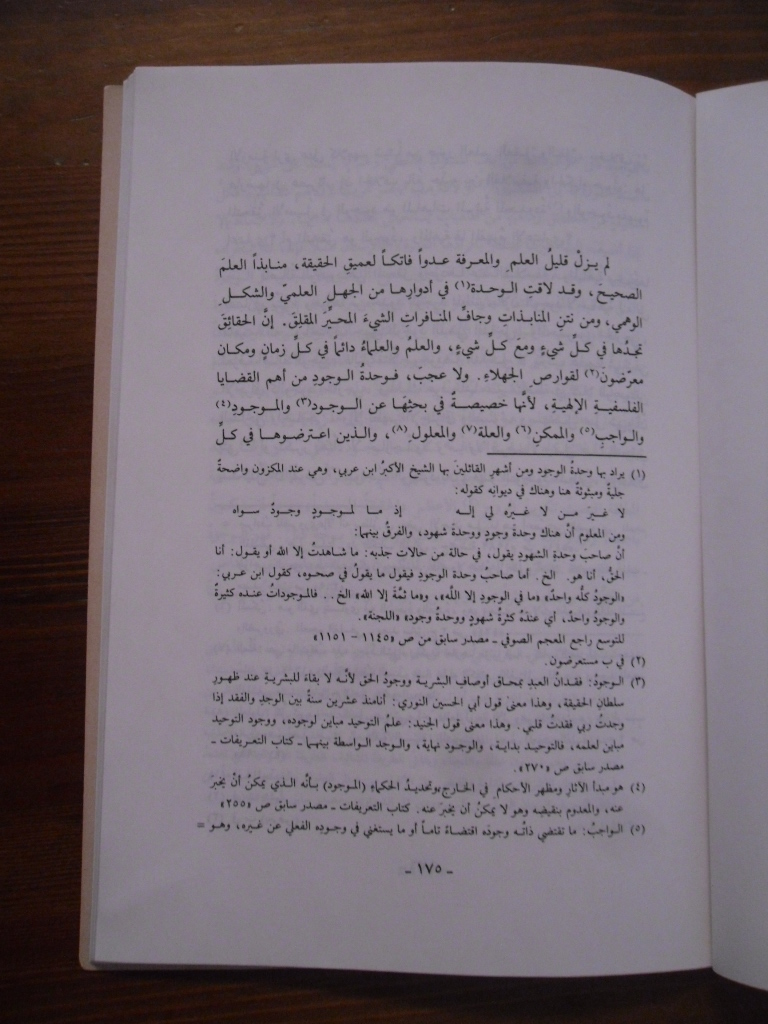 لم يزلْ قليلُ العلمِ والمعرفة عدواً فاتكاً لعميقِ الحقيقة، منابذاً العلمَ
الصحيحَ، وقد لاقتِ الوحدة(١) في أدوارِها من الجهلِ العلميّ والشكلِ
الوهمي، ومن نتنِ المنابذاتِ وجافِّ المنافراتِ الشيءَ المحيِّرَ المقلِقَ. إنَّ الحقائقَ
تجدُها في كلِّ شيءٍ ومعَ كلِّ شيءٍ، والعلمُ والعلماءُ دائماً في كلِّ زمانٍ ومكان
معرّضونَ(٢) لقوارصِ الجهلاءِ. ولا عجبَ، فوحدةُ الوجودِ من أهم القضايا
الفلسفيةِ الإلهيةِ، لأنَّها خصيصةٌ في بحثِهَا عن الوجود(٣) والموجودِ(٤)
والواجبِ(٥) والممكنِ(٦) والعلة(٧) والمعلولِ(٨)، والذين اعترضوها في كلِّ
(١) يراد بها وحدةُ الوجود ومن أشهرِ القائلينَ بها الشيخ الأكبرُ ابن عربي، وهي عند المكزون واضحةٌ
جليةٌ ومبثوثةٌ هنا وهناك في ديوانِه كقوله:
لا غيرَ من لا غيرُه لي إله إذ ما لموجودٍ وجودٌ سواه
ومن المعلوم أنَّ هناك وحدةَ وجودٍ ووحدةَ شهود، والفرقُ بينهما:
أنَّ صاحبَ وحدةِ الشهودِ يقول، في حالة من حالات جذبه: ما شاهدتُ إلا الله أو يقول: أنا
الحقُّ، أنا هو. الخ. أما صاحبُ وحدة الوجودِ فيقول ما يقولُ في صحوه، كقول ابن عربي:
«الوجودُ كلُّه واحدٌ» «ما في الوجودِ إلا اللَّه»، «وما ثمَّة إلا الله» الخ.. فالموجوداتُ عنده كثيرةٌ
والوجود واحدٌ، أي عندَهُ كثرةُ شهودٍ ووحدةُ وجود» «اللجنة».
للتوسع راجع المعجم الصوفي ـ مصدر سابق من ص «١١٤٥ – ١١٥١»
(٢) في ب مستعرضون.
(٣) الوجودُ: فقدانُ العبدِ بمحاقِ أوصافِ البشرية ووجودُ الحق لأنَّه لا بقاءَ للبشريةِ عند ظهورِ
سلطانِ الحقيقة، وهذا معنىٰ قول أبي الحسين النوري: أنامنذ عشرين سنةً بين الوجدِ والفقد إذا
وجدتُ ربي فقدتُ قلبي. وهذا معنى قول الجنيد: علمُ التوحيد مباين لوجوده، ووجود التوحيد
مباين لعلمه، فالتوحيد بداية، والوجود نهاية، والوجد الواسطة بينهما ـ كتاب التعريفات ـ
مصدر سابق ص «٢٧٠».
(٤) هو مبدأ الآثارِ ومظهر الأحكامِ في الخارجِ،وتحديدُ الحكماءِ (الموجود) بأنَّه الذي يمكنُ أنْ يخبَرَ
عنه، والمعدوم بنقيضِه وهو لا يمكنُ أن يخبَرَ عنه. كتاب التعريفات ـ مصدر سابق ص «٢٥٥»
(٥) الواجبُ: ما تقتضي ذاتُه وجودَه اقتضاءً تاماً أو ما يستغني في وجودِه الفعلي عن غيرِه، وهو =
ـ ١٧٥ ـ